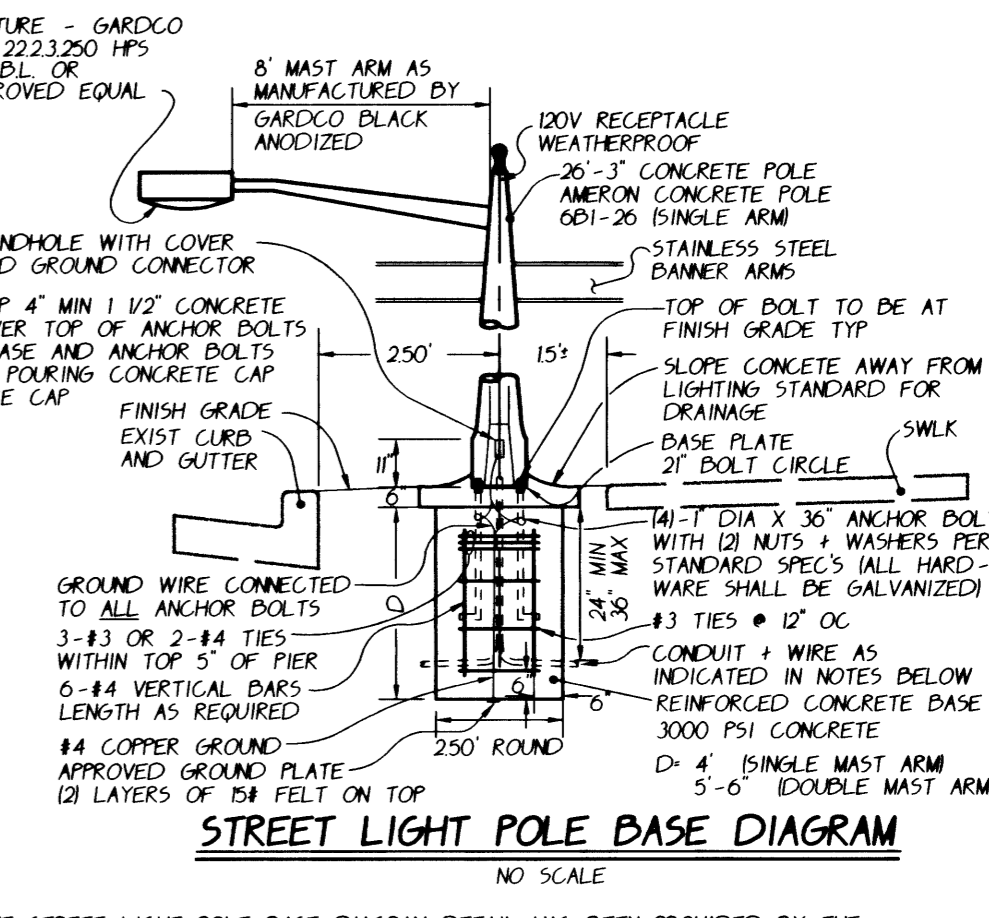 TURE - GARDCO
22.2.3.250 HPS
B.L. OR
ROVED EQUAL
8' MAST ARM AS
MANUFACTURED BY
GARDCO BLACK
ANODIZED
120V RECEPTACLE
WEATHERPROOF
26'-3" CONCRETE POLE
AMERON CONCRETE POLE
6B1-26 (SINGLE ARM)
NDHOLE WITH COVER
D GROUND CONNECTOR
STAINLESS STEEL
BANNER ARMS
P 4" MIN 1 1/2" CONCRETE
VER TOP OF ANCHOR BOLTS
ASE AND ANCHOR BOLTS
POURING CONCRETE CAP
E CAP
2.50'
1.5'±
TOP OF BOLT TO BE AT
FINISH GRADE TYP
SLOPE CONCETE AWAY FROM
LIGHTING STANDARD FOR
DRAINAGE
FINISH GRADE
EXIST CURB
AND GUTTER
11"
6"
BASE PLATE
21" BOLT CIRCLE
SWLK
(4)-1" DIA X 36" ANCHOR BOL
WITH (2) NUTS + WASHERS PER
STANDARD SPEC'S (ALL HARD-
WARE SHALL BE GALVANIZED)
24" MIN
36" MAX
D
GROUND WIRE CONNECTED
TO ALL ANCHOR BOLTS
3-#3 OR 2-#4 TIES
WITHIN TOP 5" OF PIER
6-#4 VERTICAL BARS
LENGTH AS REQUIRED
#4 COPPER GROUND
APPROVED GROUND PLATE
(2) LAYERS OF 15# FELT ON TOP
#3 TIES @ 12" OC
CONDUIT + WIRE AS
INDICATED IN NOTES BELOW
REINFORCED CONCRETE BASE
3000 PSI CONCRETE
6"
6"
2.50' ROUND
D= 4' (SINGLE MAST ARM)
5'-6" (DOUBLE MAST ARM
STREET LIGHT POLE BASE DIAGRAM
NO SCALE
STREET LIGHT POLE BASE DIAGRAM DETAIL HAS BEEN PROVIDED BY THE